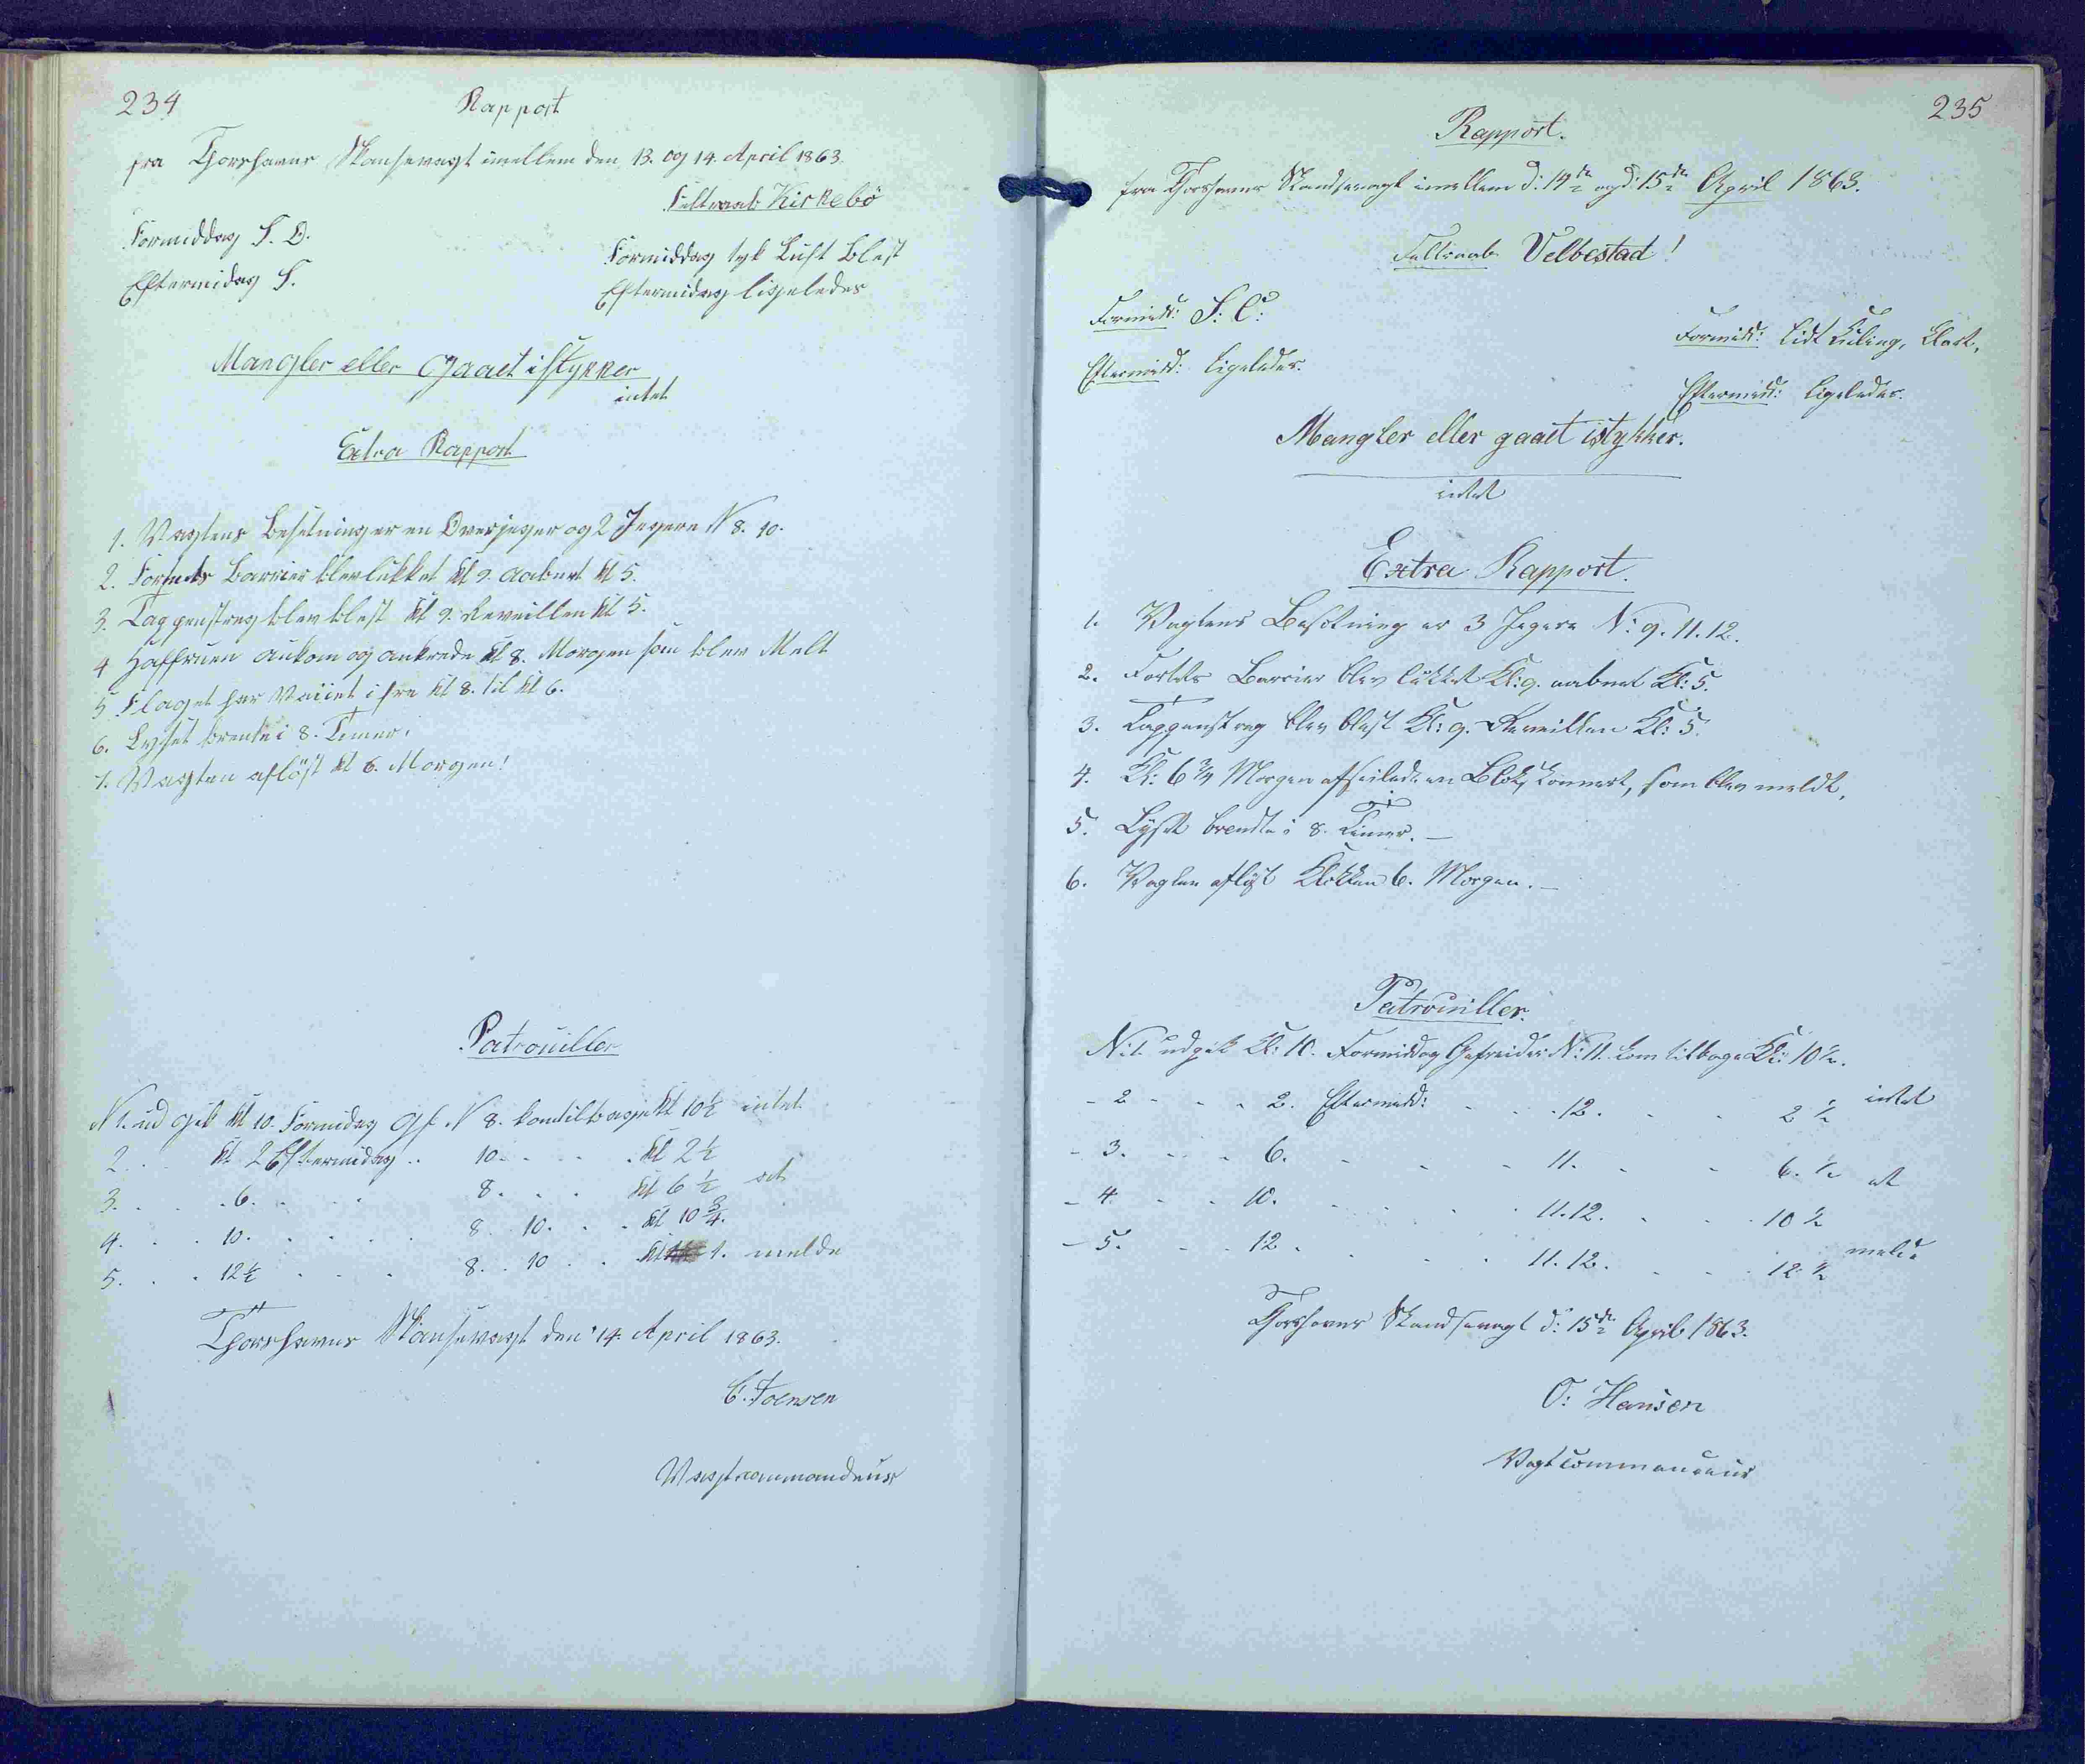 234
Rapport
fra Thorshavns Skansevagt imellem den 13. og 14. April 1863.
Feltraab Kirkebö
Formiddag S. O.
Eftermidag S.
Formiddag tyk Luft Blest
Eftermidag ligeledes
Mangler eller gaaet istykker
intet
Extra Rapport
1. Vagtens Besetning er en Overjeger og 2 Jegere N 8. 10.
2. Fortets Barrier blev lukket Kl 9. aabnet Kl 5.
3. Tappenstreg blev blest Kl 9. Reveillen Kl 5.
4 Haffruen ankom og ankrede Kl 8. Morgen som blev Melt
5 Flaget har Vaiiet i fra Kl 8. til Kl 6.
6. Lyset brente i 8. Timer.
7. Vagten aflöst Kl 6. Morgen!
Patrouiller
N 1. ud gik Kl 10. Formidag Gf. N 8. kom tilbage Kl 10½ intet
2. . . Kl 2 Eftermidag . . 10. . . . . Kl 2½
3. . . . 6. . . . 8. . . . Kl 6½ at
4. . . 10. . . . . 8. 10. . . Kl 10¾.
5. . . 12½ . . . 8. . 10 . . Kl 1. melde
Thorshavns Skansevagt den 14. April 1863.
C. Joensen
Vagtcommandeur
235
Rapport.
fra Thorshavns Skandsevagt imellem d: 14de og d: 15de April 1863.
Feltraab Velbestad!
Formidd: S: O:
Eftermidd: ligeledes.
Formidd: lidt Kuling, Klart,
Eftermidd: ligeledes.
Mangler eller gaaet istykker.
intet
Extra Rapport.
1. Vagtens Besetning er 3 Jegere N: 9. 11. 12.
2. Fortets Barrier blev lukket Kl: 9. aabnet Kl: 5.
3. Tappenstreg blev blest Kl: 9. Reveillen Kl: 5.
4. Kl: 6¾ Morgen afseilede en Slok, som blev meldt.
5. Lyset brendte i 8. Timer. —
6. Vagten aflöst Klokken 6. Morgen. —
Patrouiller.
N: 1. udgik Kl: 10. Formiddag Gefreider N: 11. kom tilbage Kl: 10½.
- 2 - - - 2. Eftermidd: - - - 12. - - 2½ intet
- 3. - - - 6. - - - 11. - - 6.½ at
- 4. - - 10. - - - 11. 12. - - 10½
- 5. - - 12. - - - 11. 12. - - 12½ melde
Thorshavns Skandsevagt d: 15de April 1863.
O: Hansen
Vagtcommandeur